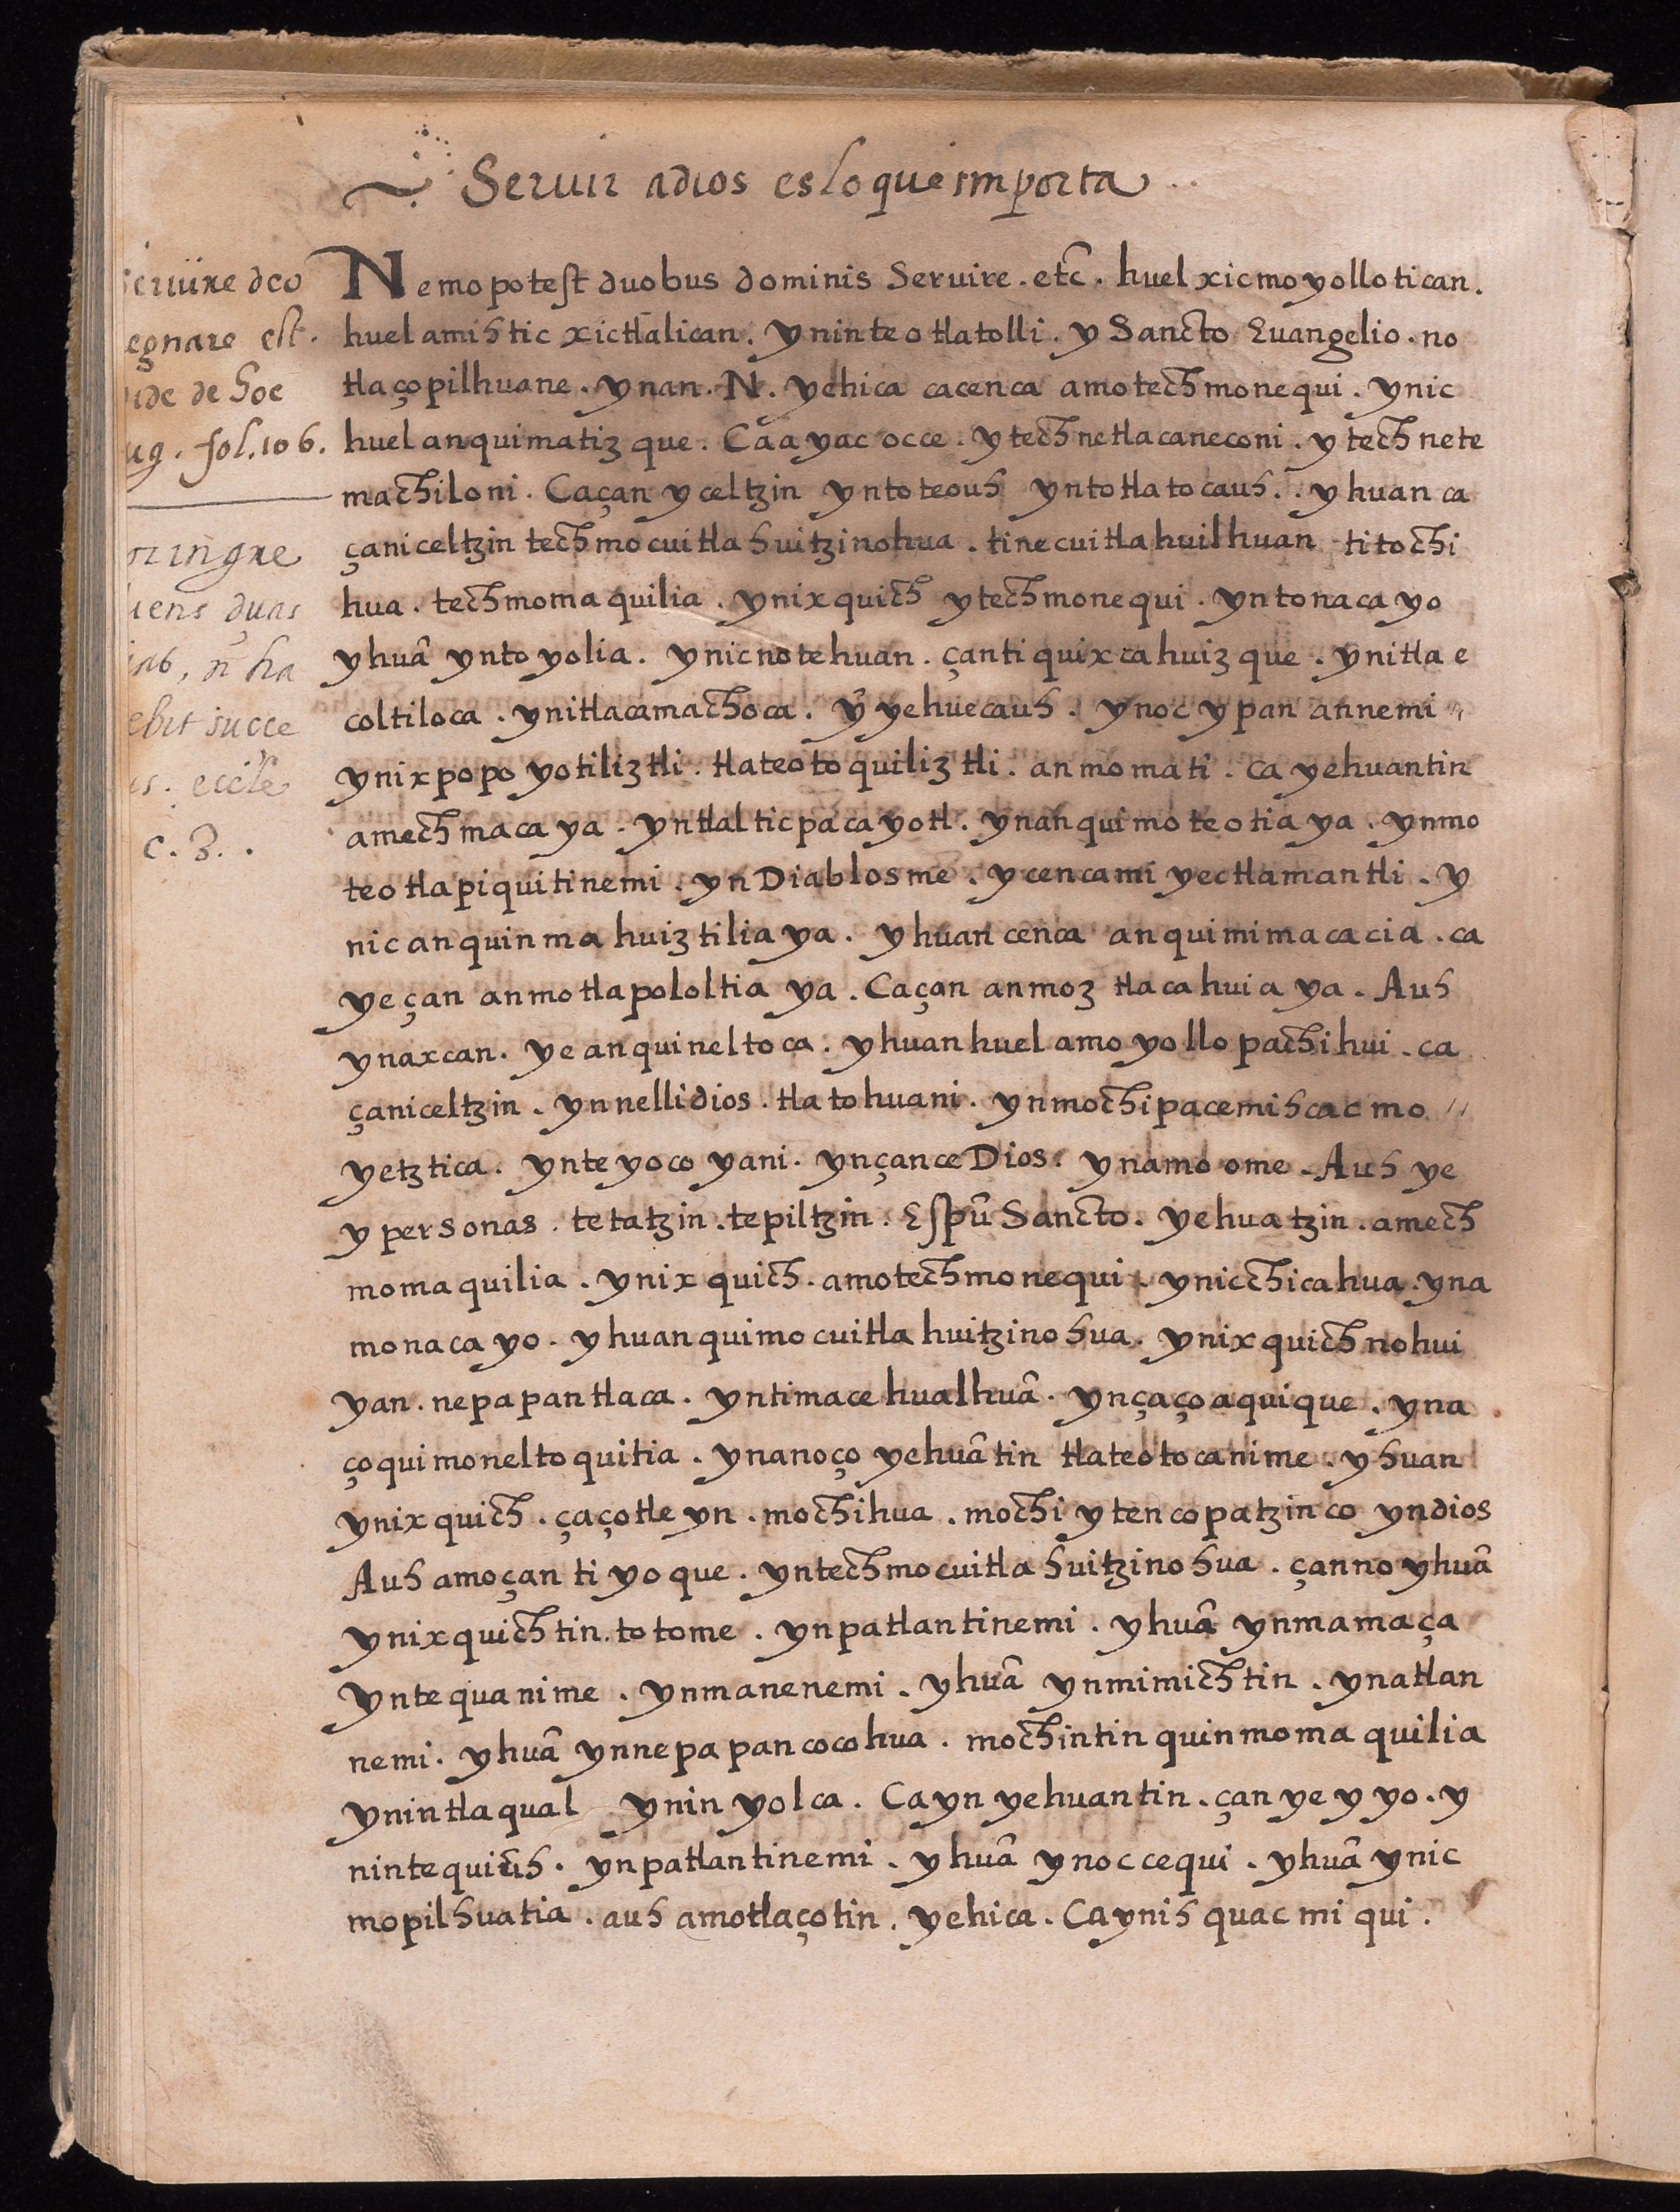 Seruir adios es lo que importa
Nemo potest duobus dominis Seruire. etc̃. huel xicmoyolloti can.
huel amihtic xictlalican. ynin teotlatolli. y Sancto Euangelio. no
tlaçopilhuane. ynan. N. yehica ca cenca amotech monequi. ynic
huel anquimatiz que. Ca ayac occe. ytech netlacaneconi. ytech nete
machiloni. Caçan yceltzin yntoteouh yntotlatocauh. yhuan ca
çaniceltzin techmocuitlahuitzinohua. tinecuitlahuilhuan titochi
hua. techmomaquilia. ynixquich ytech monequi. yntonacayo
yhuã yntoyolia. ynic no tehuan. çan tiquixcahuizque. ynitlae
coltiloca. ynitlacamachoca. yỹ yehuecauh. ynoc ypan annemi
ynixpopoyotiliztli. tlateotoquiliztli. anmomati. ca yehuantin
amechmacaya. yntlalticpacayotl. ynanquimoteotiaya. ynmo
teotlapiquitinemi. yn Diablosme. ycenca miyectlamantli. y
nic anquinmahuiztiliaya. yhuan cenca anquimimacacia. ca
yeçan anmotlapololtiaya. Caçan anmoztlacahuiaya. Auh
ynaxcan. ye anquineltoca. yhuan huel amoyollo pachihui. ca
çaniceltzin. ynnelli dios. tlatohuani. ynmochipa cemihcac mo
yetztica. ynteyocoyani. ynçance Dios. ynamo ome. Auh ye
y personas. tetatzin. tepiltzin. Espũ Sancto. yehuatzin. amech
momaquilia. ynixquich. amotechmonequi. ynicchicahua. yna
monacayo. yhuan quimocuitlahuitzinohua. ynixquich nohui
yan. nepapan tlaca. yntimacehualhuã. ynçaço aquique. yna
ço quimoneltoquitia. ynanoço yehuãtin tlateotocanime. yhuan
ynixquich. çaçotleyn. mochihua. mochi ytencopatzinco yndios
Auh amoçan tiyoque. yntechmocuitlahuitzinohua. çanno yhuã
ynixquichtin. totome. ynpatlantinemi. yhuã ynmamaça
yntequanime. ynmanenemi. yhuã ynmimichtin. ynatlan
nemi. yhuã ynnepapan cocohua. mochintin quinmomaquilia
ynintlaqual ynin yolca. Ca yn yehuantin. çan ye yyo. y
nintequiuh. ynpatlantinemi. yhuã ynoccequi. yhuã ynic
mopilhuatia. auh amo tlaçotin. yehica. Ca ynihquac miqui.
eruire deo
egnare est.
ide de hoc
ug. fol. 106.
ingre
iens duas
ias, ñ ha
ebit succe
s. eccle
c. 3.